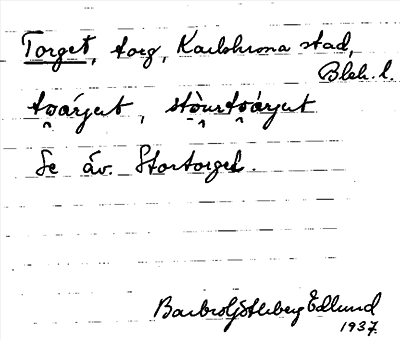 Torget, torg, Karlskrona stad,
Blek. l.
tɷárjɩt, stɷ̀urtɷárjɩt
Se äv. Stortorget.
Barbro Götlberg Edlund
1937.